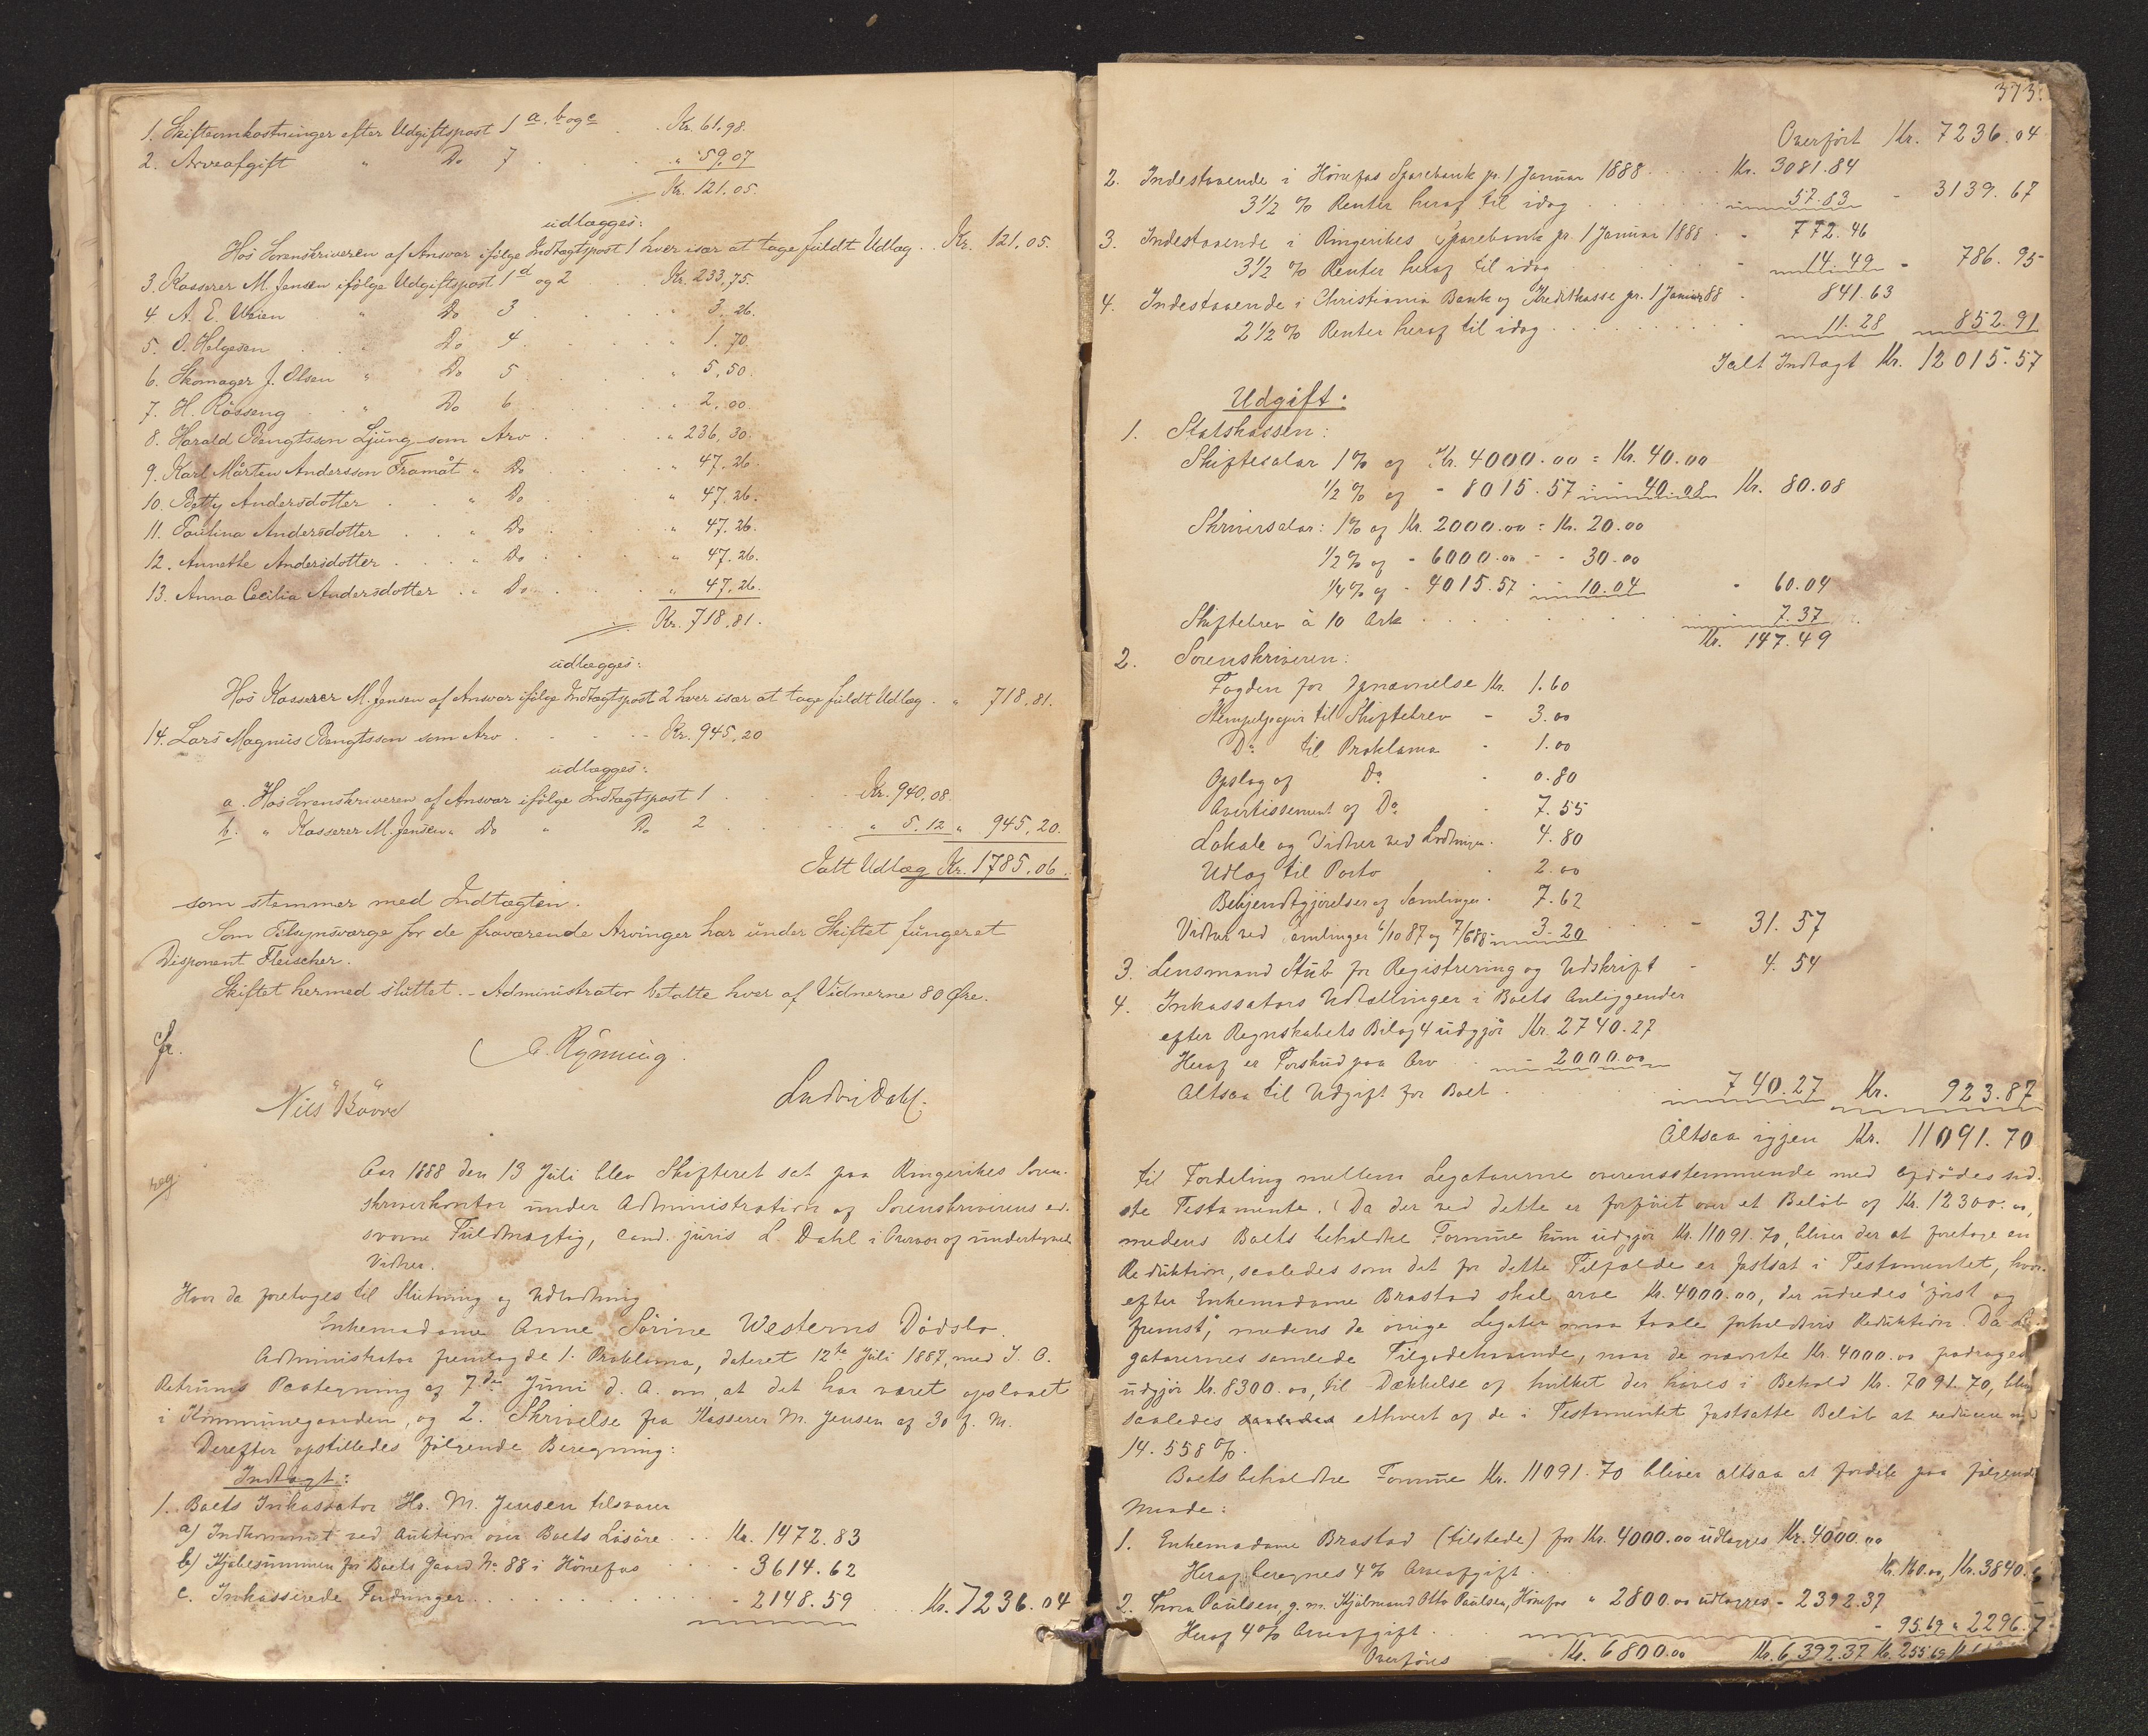 1. Skifteomkostninger efter Udgiftspost 1 a. b og c . . Kr. 61.98.
2. Arveafgift " Do 7 . . . . " 59.07
Kr. 121.05.
udlægges:
Hos Sorenskriveren af Ansvar ifølge Indtægtspost 1 hver især at tage fuldt Udlæg . . Kr. 121.05.
3. Kasserer M. Jensen ifølge Udgiftspost 1 d og 2 . . Kr. 233,75.
4 A. E. Weien " Do 3 . . . . " 3.26.
5. O. Helgesen . . " Do 4 . . . . " 1.70.
6. Skomager J. Olsen " Do 5 . . . . " 5,50.
7. H. Røsseng . . " Do 6 . . . . " 2,00.
8. Harald Bengtsson Ljung som Arv . . . . " 236,30.
9. Karl Mårten Andersson Framåt " Do . . . . " 47.26.
10. Betty Andersdotter . . . " Do . . . . " 47.26.
11. Paulina Andersdotter . . " Do . . . . " 47.26.
12. Annethe Andersdotter . . . " Do . . . . " 47.26.
13. Anna Cecilia Andersdotter . " Do . . . . " 47.26.
Kr. 718,81.
udlægges:
Hos Kasserer M. Jensen af Ansvar ifølge Indtægtspost 2 hver især at tage fuldt Udlæg . " 718,81.
14. Lars Magnus Bengtsson som Arv . . . . Kr. 945,20
udlægges:
a. Hos Sorenskriveren af Ansvar ifølge Indtægtspost 1 . . . Kr. 940,08.
b. " Kasserer M. Jensen " Do " Do 2 . . . " 5.12 " 945,20.
Ialt Udlæg Kr. 1785,06.
som stemmer med Indtægten.
Som Tilsynsværge for de fraværende Arvinger har under Skiftet fungeret
Disponent Fleischer.
Skiftet hermed sluttet. - Administrator betalte hver af Vidnerne 80 Øre.
C. Rynning.
Nils Bøvre
Ludv. Dahl.
Aar 1888 den 13 Juli blev Skifteret sat paa Ringerikes Soren-
skriverkontor under Administration af Sorenskriverens ed-
svorne Fuldmægtig, cand. juris L. Dahl i Overvær af undertegnede
Vidner.
Hvor da foretoges til Slutning og Udlodning
Enkemadame Anne Sørine Westerns Dødsbo.
Administrator fremlagde 1. Proklama, dateret 12te Juli 1887, med J. O.
Retrums Paategning af 7de Juni d. A. om, at det har været opslaaet
i Kommunegaarden, og 2. Skrivelse fra Kasserer M. Jensen af 30 f. M.
Derefter opstilledes følgende Beregning:
Indtægt:
1. Boets Inkassator Hr. M. Jensen tilsvarer
a) Indkommet ved Auktion over Boets Løsøre . . Kr. 1472.83
b) Kjøbesummen for Boets Gaard No 88 i Hønefos . . - 3614.62
c. Inkasserede Fordringer . . . . . . - 2148.59 Kr. 7236.04
373.
Overført Kr. 7236.04
2. Indestaaende i Hønefos Sparebank pr. 1 Januar 1888 . . . . Kr. 3081.84
3 1/2 % Renter heraf til idag . . . . . 57.83 - 3139.67
3. Indestaaende i Ringerikes Sparebank pr. 1 Januar 1888 . - 772.46
3 1/2 % Renter heraf til idag . . . . . 14.49 - 786.95
4. Indestaaende i Christiania Bank og Kreditkasse pr. 1 Januar 88 - 841.63
2 1/2 % Renter heraf til idag . . . . . 11.28 852.91
Ialt Indtægt Kr. 12015.57
Udgift:
1. Statskassen:
Skiftesalær 1 % af Kr. 4000.00 = Kr. 40.00
1/2 % af - 8015.57 - - 40.08 Kr. 80.08
Skriversalær: 1 % af Kr. 2000.00 = Kr. 20.00
1/2 % af - 6000.00 - - 30.00
1/4 % af - 4015.57 - - 10.04 - 60.04
Skiftebrev à 10 Ark . . . . . 7.37
Kr. 147.49
2. Sorenskriveren:
Fogden for Opnævnelse Kr. 1.60
Stempelpapir til Skiftebrev - 3.00
Do til Proklama - 1.00
Opslag af Do - 0.80
Avertissement af Do - 7.55
Lokale og Vidner ved Lodningen - 4.80
Udlæg til Porto - 2.00
Bekjendtgjørelser af Samlinger - 7.62
Vidner ved Samlinger 6/10 87 og 7/6 88 - 3.20 . . . - 31.57
3. Lensmand Stub for Registrering og Udskrift - 4.54
4. Inkassators Udtællinger i Boets Anliggender
efter Regnskabets Bilag 4 udgjør Kr. 2740.27
Heraf er Forskud paa Arv - 2000.00
Altsaa til Udgift for Boet . . . . 740.27 Kr. 923.87
Altsaa igjen Kr. 11091.70
til Fordeling mellem Legatarerne overensstemmende med Afdødes sid-
ste Testamente. Da der ved dette er forføiet over et Beløb af Kr. 12300.00,
medens Boets beholdne Formue kun udgjør Kr. 11091.70, bliver der at foretage en
Reduktion, saaledes som det for dette Tilfælde er fastsat i Testamentet, hvor-
efter Enkemadame Brastad skal arve Kr. 4000.00, der udredes "først og
fremst", medens de øvrige Legater maa taale forholdsvis Reduktion. Da Le-
gatarernes samlede Tilgodehavende, naar de nævnte Kr. 4000.00 fradrages
udgjør Kr. 8300.00, til Dækkelse af hvilket der haves i Behold Kr. 7091.70, bliver
saaledes saaledes ethvert af de i Testamentet fastsatte Beløb at reducere med
14.558 %.
Boets beholdne Formue Kr. 11091.70 bliver altsaa at fordele paa følgende
Maade:
1. Enkemadame Brastad (tilstede) for Kr. 4000.00 udlægges Kr. 4000.00
Heraf beregnes 4 % Arveafgift . . Kr. 160.00, Kr. 3840.
2. Thora Paulsen, g. m. Hjalmund Otto Paulsen, Hønefos " 2800.00 udlægges - 2392.37
Heraf 4 % Arveafgift . . . - 95.69 " 2296.
Overføres Kr. 6800.00 Kr. 6392.37 Kr. 255.69